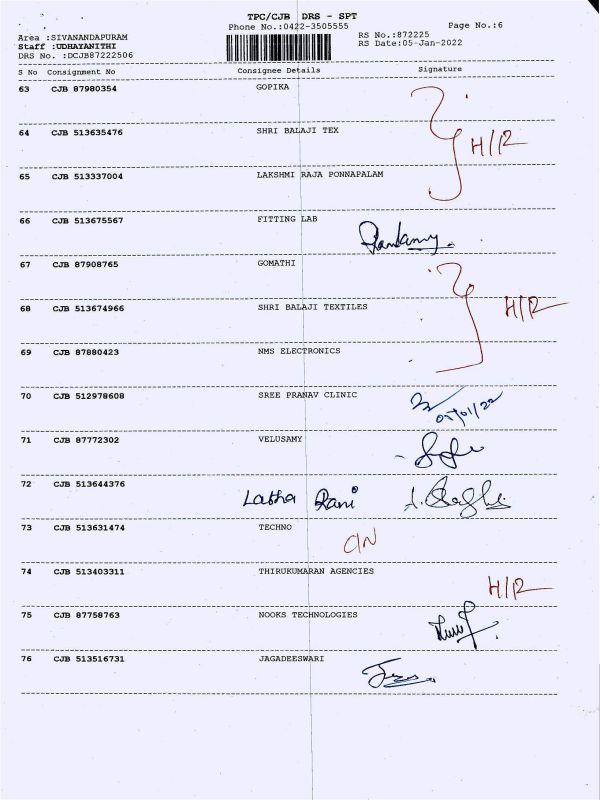 TPC/CJB DRS - SPT
Phone No.:0422-3505555
Page No.:6
Area :SIVANANDAPURAM
RS No.:872225
Staff :UDHAYANITHI
RS Date:05-Jan-2022
DRS No. :DCJB87222506
S No Consignment No Consignee Details Signature
63 CJB 87980354 GOPIKA
64 CJB 513635476 SHRI BALAJI TEX
H/R
65 CJB 513337004 LAKSHMI RAJA PONNAPALAM
66 CJB 513675567 FITTING LAB
67 CJB 87908765 GOMATHI
68 CJB 513674966 SHRI BALAJI TEXTILES H/R
69 CJB 87880423 NMS ELECTRONICS
70 CJB 512978608 SREE PRANAV CLINIC
05/01/22
71 CJB 87772302 VELUSAMY
72 CJB 513644376
Latha Rani
73 CJB 513631474 TECHNO
C/N
74 CJB 513403311 THIRUKUMARAN AGENCIES
H/R
75 CJB 87758763 NOOKS TECHNOLOGIES
76 CJB 513516731 JAGADEESWARI